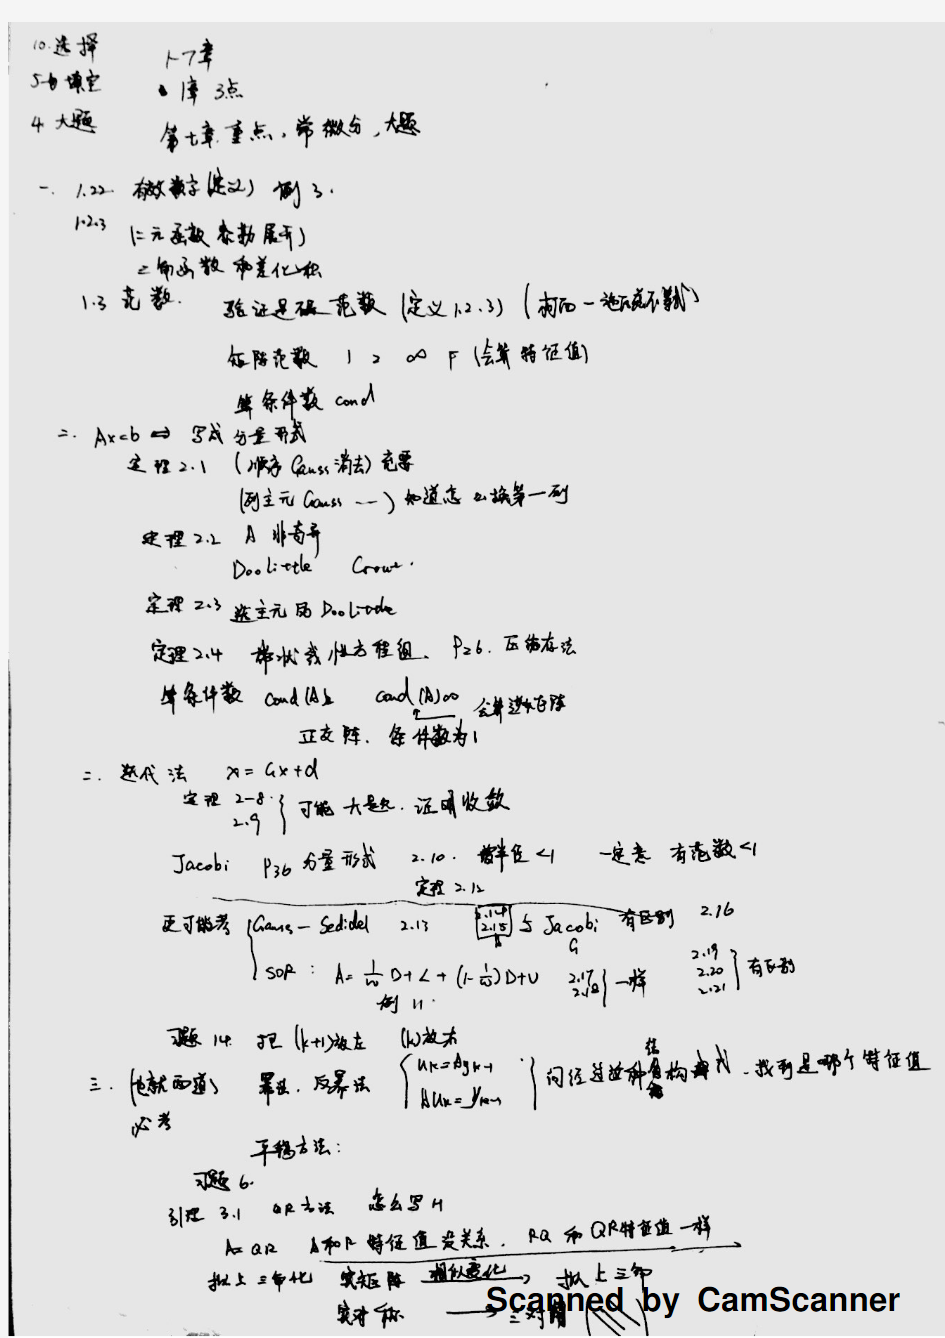 10.选择 1-7章
5个填空 1章 3点
4 大题 第七章.重点,常微分,大题
一. 1.22 有效数字(定义) 例3.
1.2.3 (二元函数泰勒展开)
三角函数 和差化积
1.3 范数. 验证是不是范数 (定义1.2.3) (柯西一 不等式)
矩阵范数 1 2 ∞ F (会算特征值)
算条件数 cond
二. Ax=b ⇔ 写成分量形式
定理2.1 (顺序Gauss消去) 充要
(列主元Gauss ---) 知道怎么换第一列
定理2.2 A 非奇异
Doolittle Crout.
定理2.3 选主元的Doolittle
定理2.4 带状线性方程组、P26.压缩存法
算条件数 cond(A)2 cond(A)∞ 会算逆矩阵
正交阵. 条件数为1
二. 迭代法 x=Gx+d
定理 2-8.
2.9 可能大题.证明收敛
Jacobi P36 分量形式 2.10. 谱半径<1 一定 有范数<1
定理2.12
更可能考 Gauss-Seidel 2.13 2.14 2.15 与Jacobi 有区别 2.16
G
SOR: A= 1/w D+L+(1-1/w)D+U 2.17 2.18 一样 2.19 2.20 2.21 有区别
例11.
习题14. 把(k+1)放左 (k)放右
三. 幂法.反幂法 uk=Ayk-1 Auk=yk-1 问经过这种结构 式.找到是哪个特征值
必考
平移方法:
习题6.
引理3.1 QR方法 怎么写H
A=QR A和R特征值没关系. RQ和QR特征值一样
拟上三角化 实矩阵 相似变化 拟上三角
实对称 三对角
Scanned by CamScanner